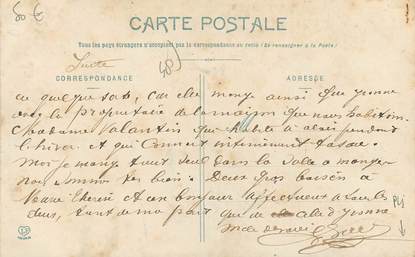 50 €
CARTE POSTALE
Tous les pays étrangers n'acceptent pas la correspondance au recto (Se renseigner à la Poste)
Suite
CORRESPONDANCE
ADRESSE
en quelque sorte, car elle mange ainsi que Yvonne
avec la propriétaire de la maison que nous habitons
Madame Valantin qui habite à alais pendant
l'hiver et qui connait intimement
Moi je mange tout seul dans la salle à manger
nous sommes très bien. Deux gros baisers à
Mémé Chérie et un bonjour affectueux à tous les
deux, tant de ma part que de celle d'Yvonne